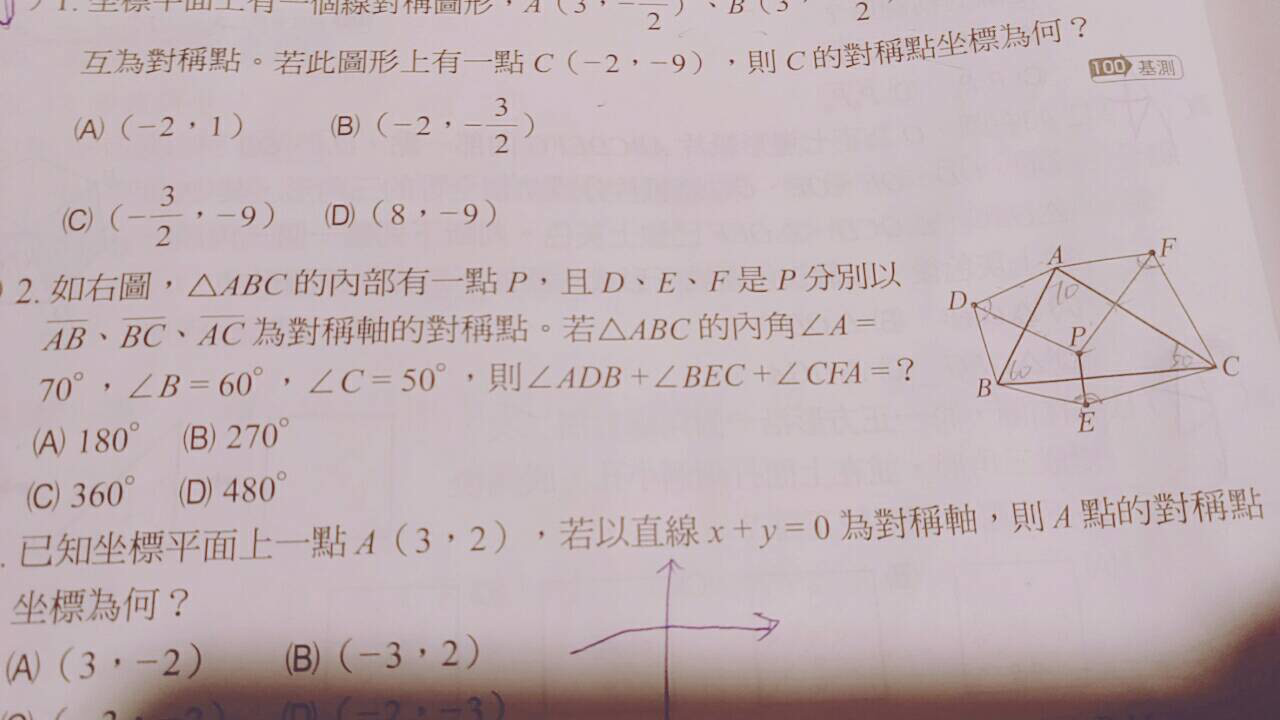 1. 坐標平面上有一個線對稱圖形，A（3，-
2
）、B（3，
2
互為對稱點。若此圖形上有一點 C（-2，-9），則 C 的對稱點坐標為何？
100 基測
(A)（-2，1） (B)（-2，-3/2）
(C)（-3/2，-9） (D)（8，-9）
2. 如右圖，△ABC 的內部有一點 P，且 D、E、F 是 P 分別以
AB、BC、AC 為對稱軸的對稱點。若△ABC 的內角∠A =
70°，∠B = 60°，∠C = 50°，則∠ADB + ∠BEC + ∠CFA = ？
(A) 180° (B) 270°
(C) 360° (D) 480°
A
F
D
70
P
B
60
50
C
E
. 已知坐標平面上一點 A（3，2），若以直線 x + y = 0 為對稱軸，則 A 點的對稱點
坐標為何？
(A)（3，-2） (B)（-3，2）
(D)（-2，-3）